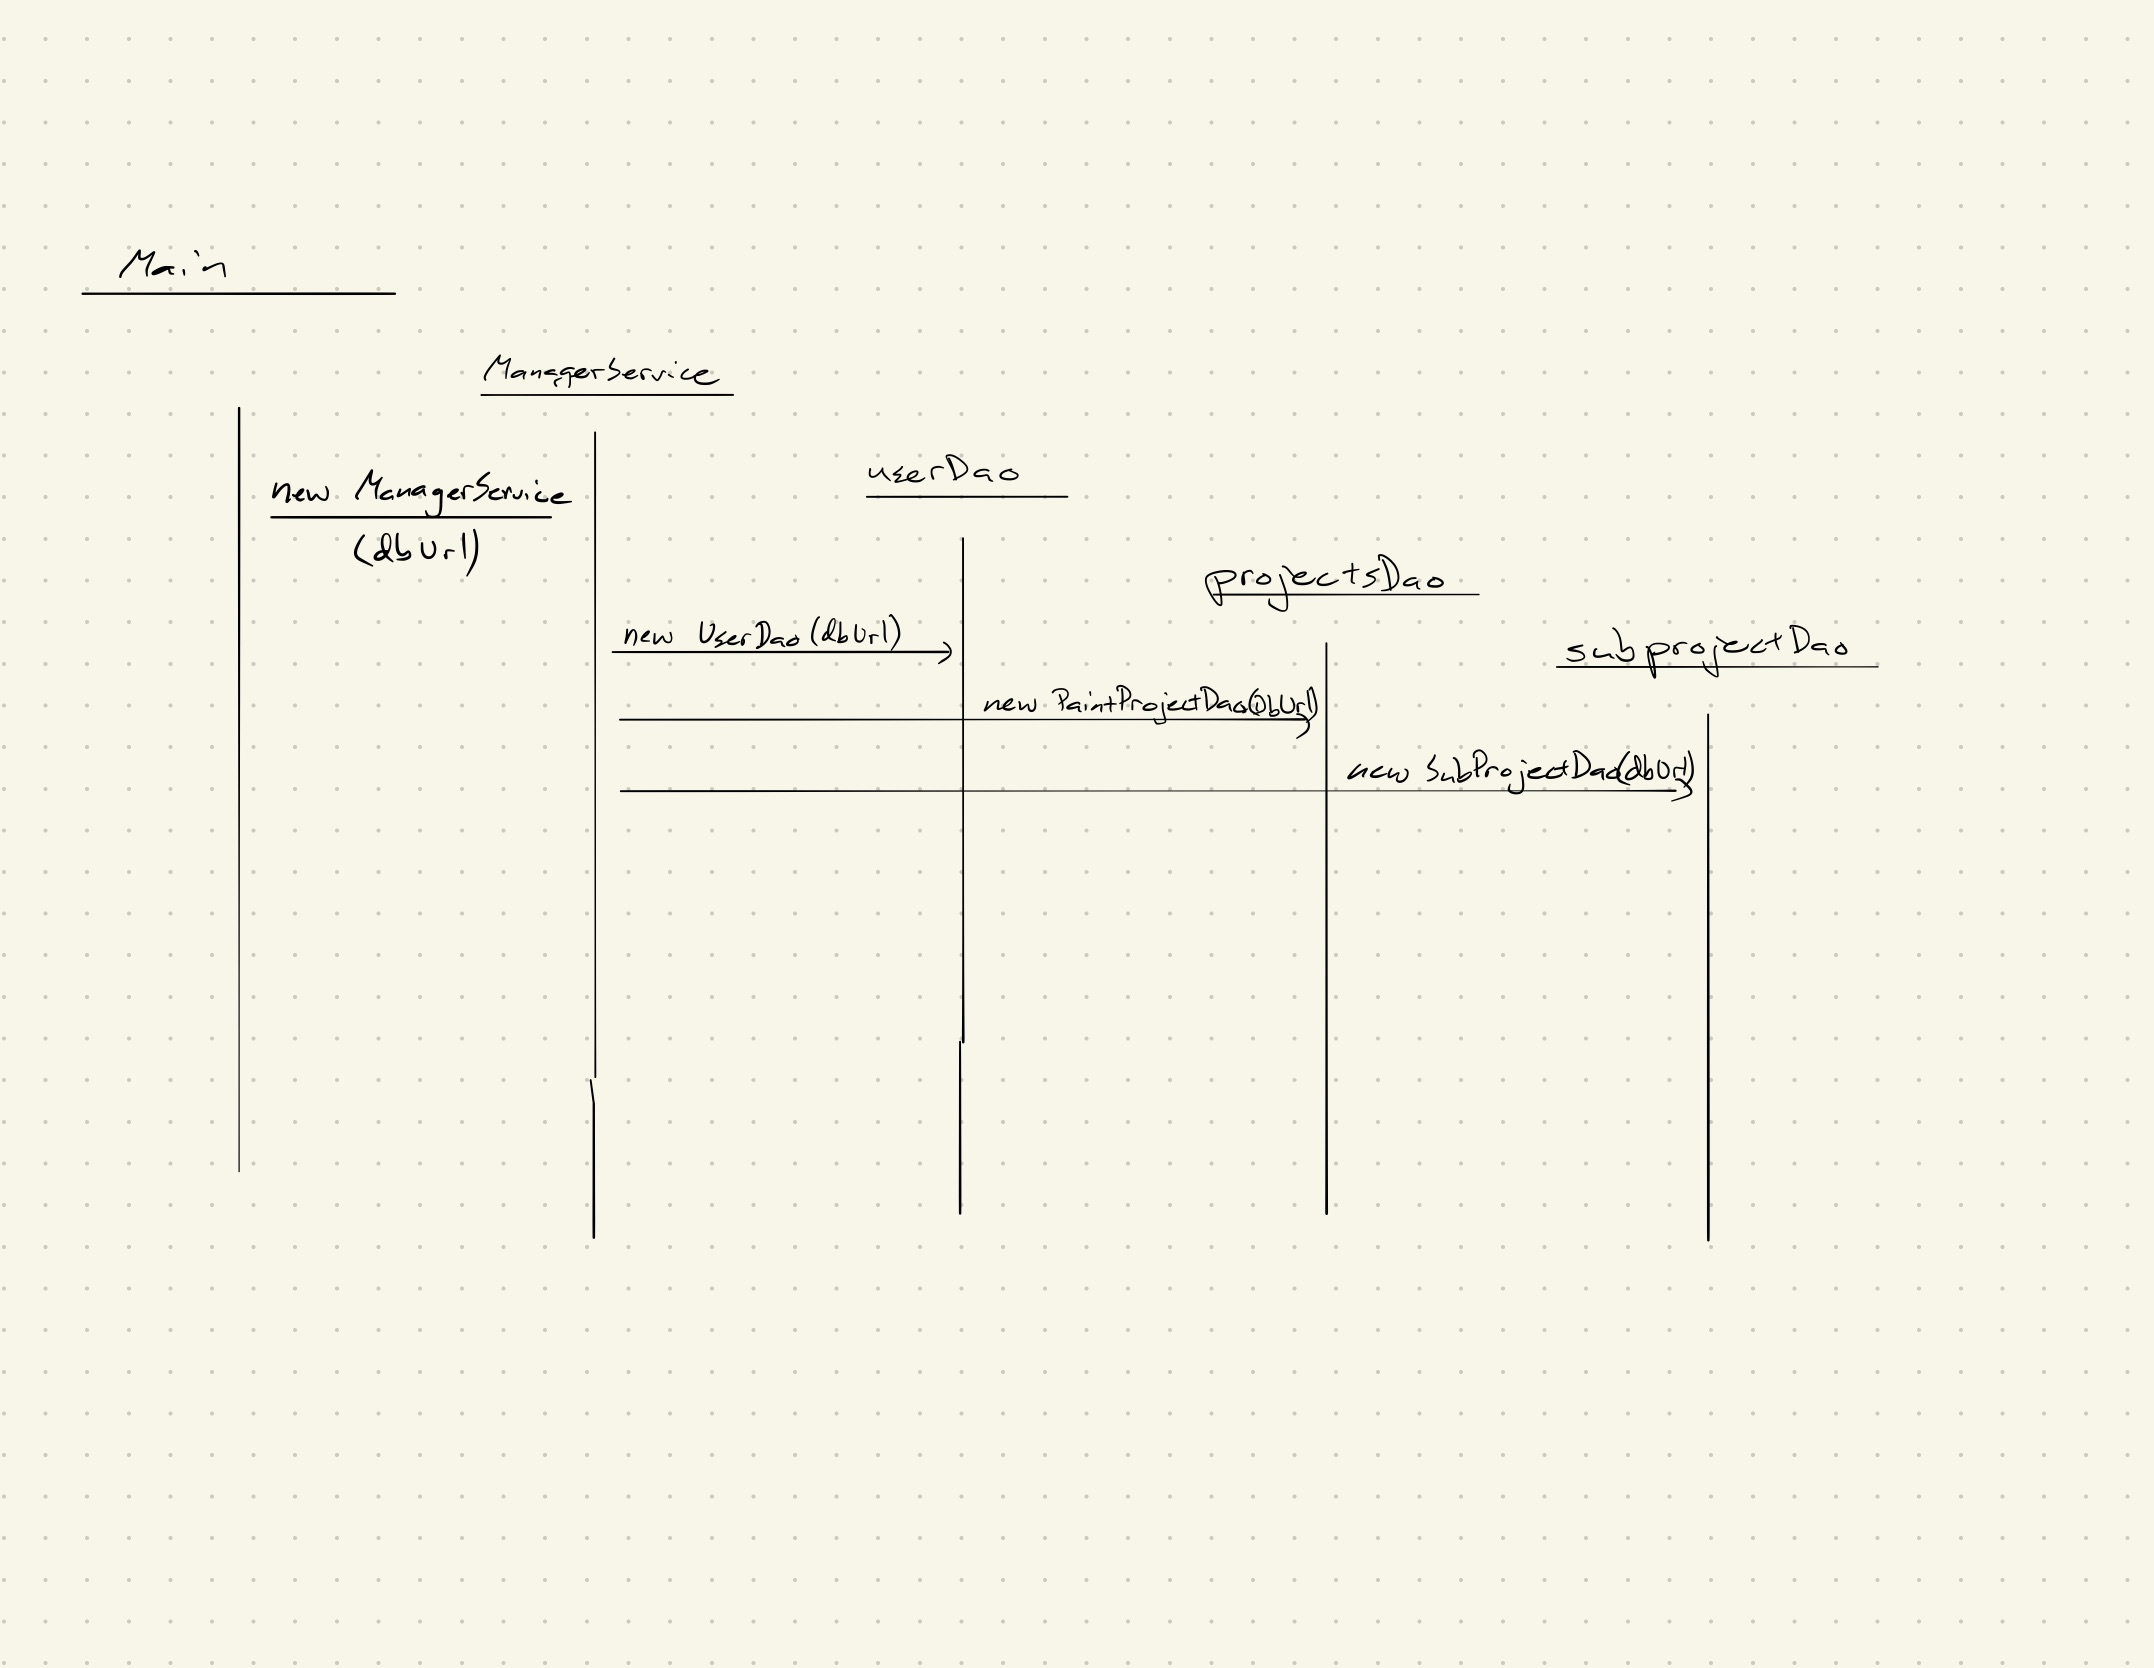 Main
ManagerService
userDao
new ManagerService
(dbUrl)
projectsDao
new UserDao(dbUrl)
subprojectDao
new PaintProjectDao(DbUrl)
new SubProjectDao(dbUrl)